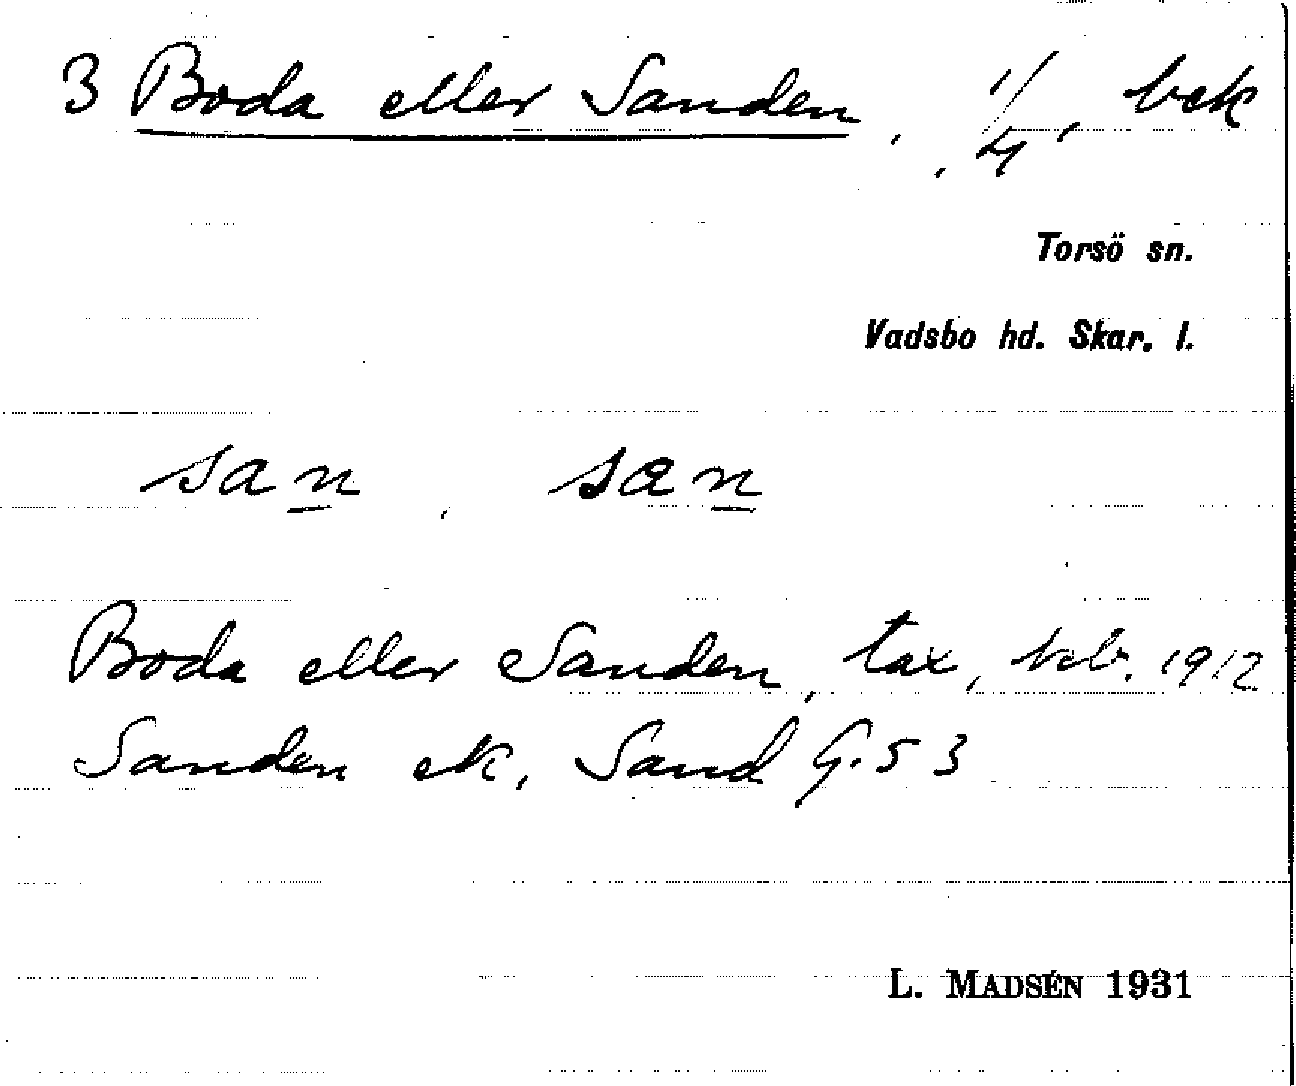 3 Boda eller Sanden, , 1/4, bek
Torsö sn.
Vadsbo hd. Skar. l.
san̲, sæn̲
Boda eller Sanden, tax, 1912
Sanden ek, Sand G. 53
L. MADSÉN 1931